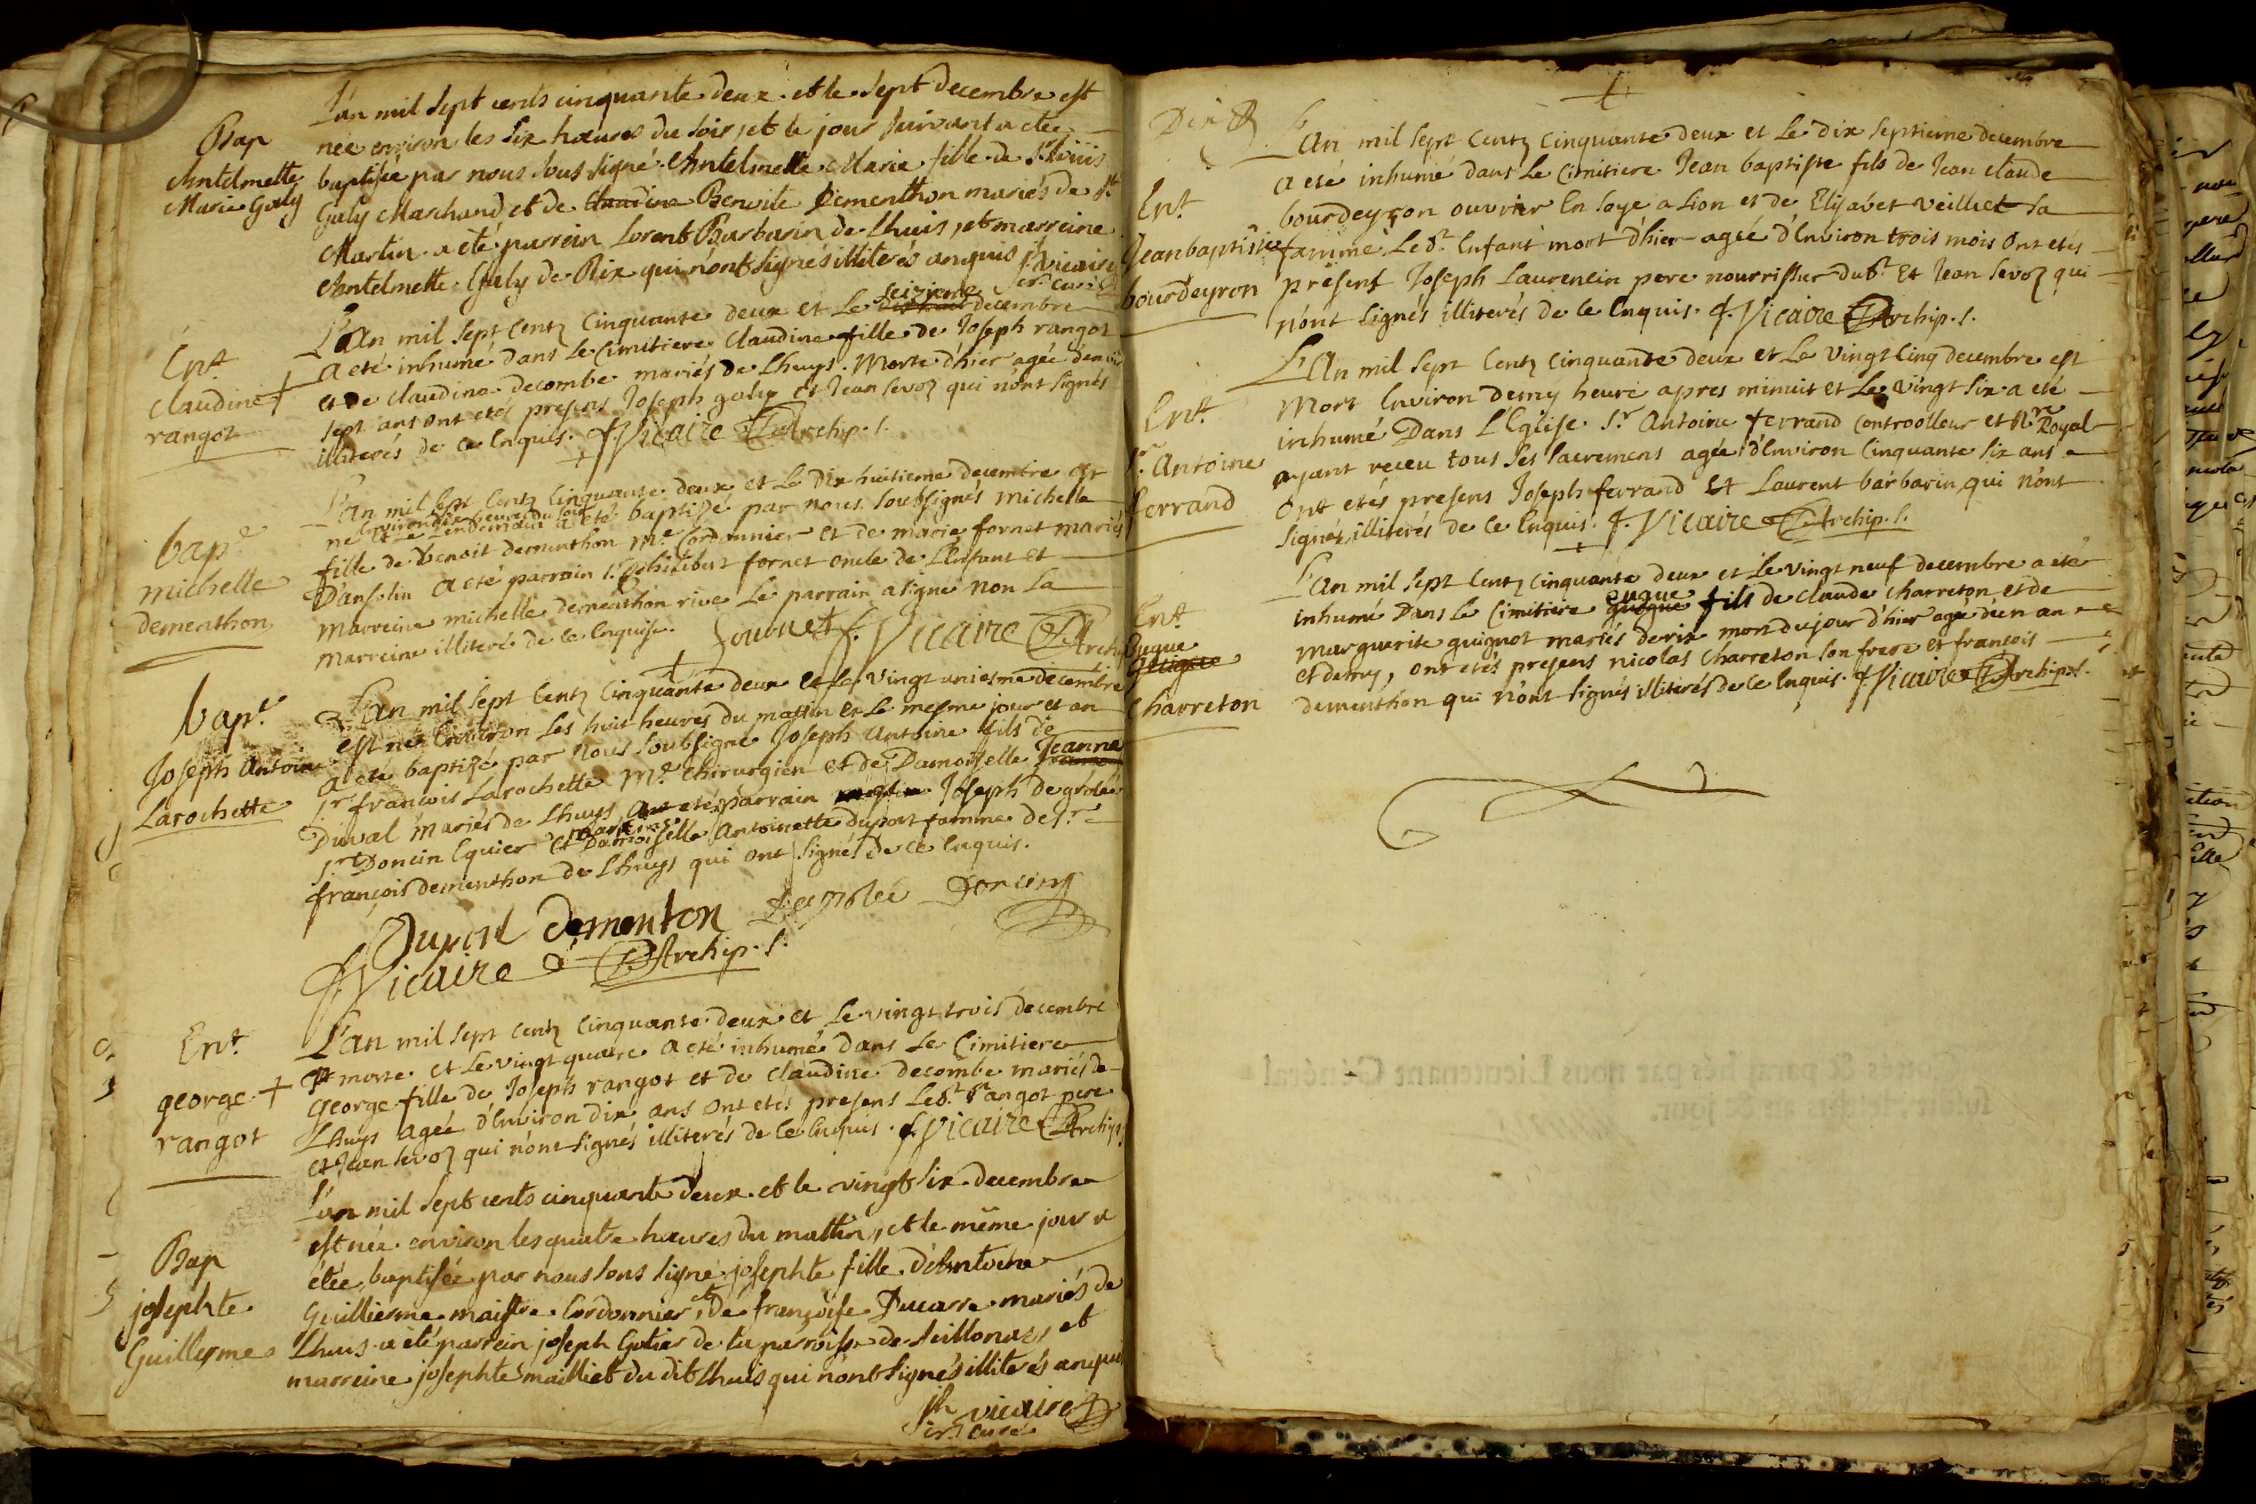 Bap
Antelmette
Marie Galy
L'an mil sept cents cinquante deux et le sept decembre est
née environ les six heures du soir, et le jour suivant a etée
baptisée par nous sous signé Antelmette Marie fille de Sr Louis
Galy Marchand et de Claudine Benoite Dementhon mariés de St
Martin a eté parrein Lorent Barbarin de Lhuis, et marreine
Antelmette Galy de Rix qui n'ont signés illiterés anquis jh vicaire
Ent
claudine
rangot
L'an mil sept centz cinquante deux et Le seizieme decembre
a eté inhumé dans Le Cimitiere Claudine fille de Joseph rangot
et de claudine decombe mariés de Lhuys. Morte d'hier agée d'environ
sept ans ont etés presens Joseph galy et Jean Sevoz qui n'ont signés
illiterés de ce Enquis. f. Vicaire Archip. S.
bap.e
michelle
dementhon
L'an mil sept centz cinquante deux et Le Dix huitieme decembre est
né environ six heures du soir
et Le Lendemain a eté baptizé par nous soubsignés michelle
fille de Benoit dementhon Me Cordonnier et de marie fornet mariés
Danfolin a eté parrain Sr philibert fornet oncle de L'Enfant et
marreine michelle dementhon rive Le parrain a signé non La
marreine illiteré de ce Enquise. fournet f. Vicaire Archip
bap.e
Joseph Antoine
Larochette
L'an mil sept Centz Cinquante deux et Le vingt uniesme decembre
est né Environ Les huit heures du matin et Le mesme jour et an
a eté baptizé par nous soubsigné Joseph Antoine fils de
Sr francois Larochette Me chirurgien et de Damoiselle Jeanne
Duval mariés de Lhuys, a eté parrain Joseph de grolée
Sr Doncin Equier et marreine
Damoiselle Antoinette duport famme de Sr
françois dementhon de Lhuys qui ont signés de ce Enquis.
Duport Dementon Degrolée Doncing
f. Vicaire Archip. S.
Ent
george
rangot
L'an mil sept centz cinquante deux et Le vingt trois decembre
est morte et Le vingt quatre a eté inhumé dans Le Cimitiere
George fille de Joseph rangot et de claudine decombe mariés de
Lhuys agée d'Environ dix ans ont etés presens Ledt rangot pere
et Jean Sevoz qui n'ont signés illiterés de ce Enquis. f. Vicaire Archip
Bap
josephte
Guillerme
L'an mil sept cents cinquante deux et le vingt six decembre
est née environ les quatre heures du mattin, et le même jour a
étée baptisée par nous sous signé josephte fille d'Antoine
Guillierme maistre Cordonnier, et de françoise Ducarre mariés de
Lhuis a eté parrein joseph Gotier de la parroisse de Seillonaz, et
marreine josephte mailliet du dit Lhuis qui n'ont signés illiterés anquis
jh vicaire
Dix 8
Ent
Jean baptiste
bourdeyron
L'An mil sept Centz Cinquante deux et Le Dix Septieme decembre
a eté inhumé dans Le Cimitiere Jean baptiste fils de Jean claude
bourdeyron ouvrier En soye a Lion et de Elizabet veilliet sa
famme. Ledt Enfant mort d'hier agéé d'Environ trois mois ont etés
present Joseph Laurencin pere nourrissier dudt Et Jean Sevoz qui
n'ont signés illiterés de ce Enquis. f. Vicaire Archip. S.
Ent
Sr Antoine
ferrand
L'An mil sept Centz Cinquante deux et Le Vingt Cinq decembre est
Mort Environ demy heure apres minuit et Le vingt six a eté
inhumé Dans L'Eglise. Sr Antoine ferrand Controolleur et Nre Royal
ayant receu tous ses sacremens agéé d'Environ Cinquante six ans
ont etés presens Joseph ferrand et Laurent barbarin qui n'ont
signés illiterés de ce Enquis. f. Vicaire Archip. S.
Ent
Eugue
Charreton
L'An mil sept Centz Cinquante deux et Le vingt neuf decembre a eté
inhumé Dans Le Cimitiere eugue fils de claude Charreton et de
Marguerite guignot mariés de rix mort du jour d'hier agé d'un an
et demy, ont etés presens nicolas Charreton son frere et françois
dementhon qui n'ont signés illiterés de ce Enquis. f. Vicaire Archip. S.